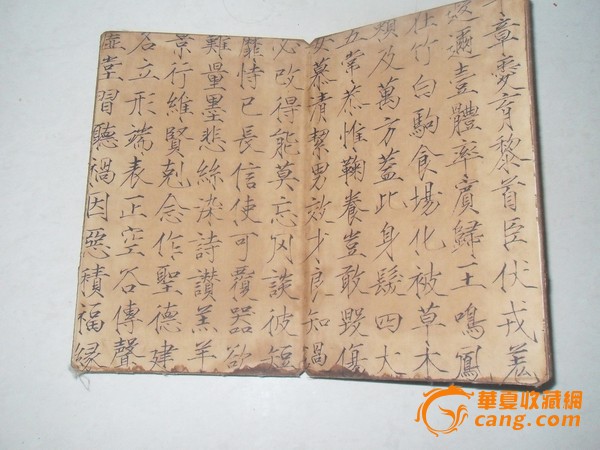 章愛育黎首臣伏戎羌
遐邇壹體率賓歸王鳴鳳
在竹白駒食場化被草木
賴及萬方蓋此身髮四大
五常恭惟鞠養豈敢毀傷
女慕清絜男效才良知過
必改得能莫忘罔談彼短
靡恃己長信使可覆器欲
難量墨悲絲染詩讚羔羊
景行維賢剋念作聖德建
名立形端表正空谷傳聲
虛堂習聽禍因惡積福緣
華夏收藏網
cang.com